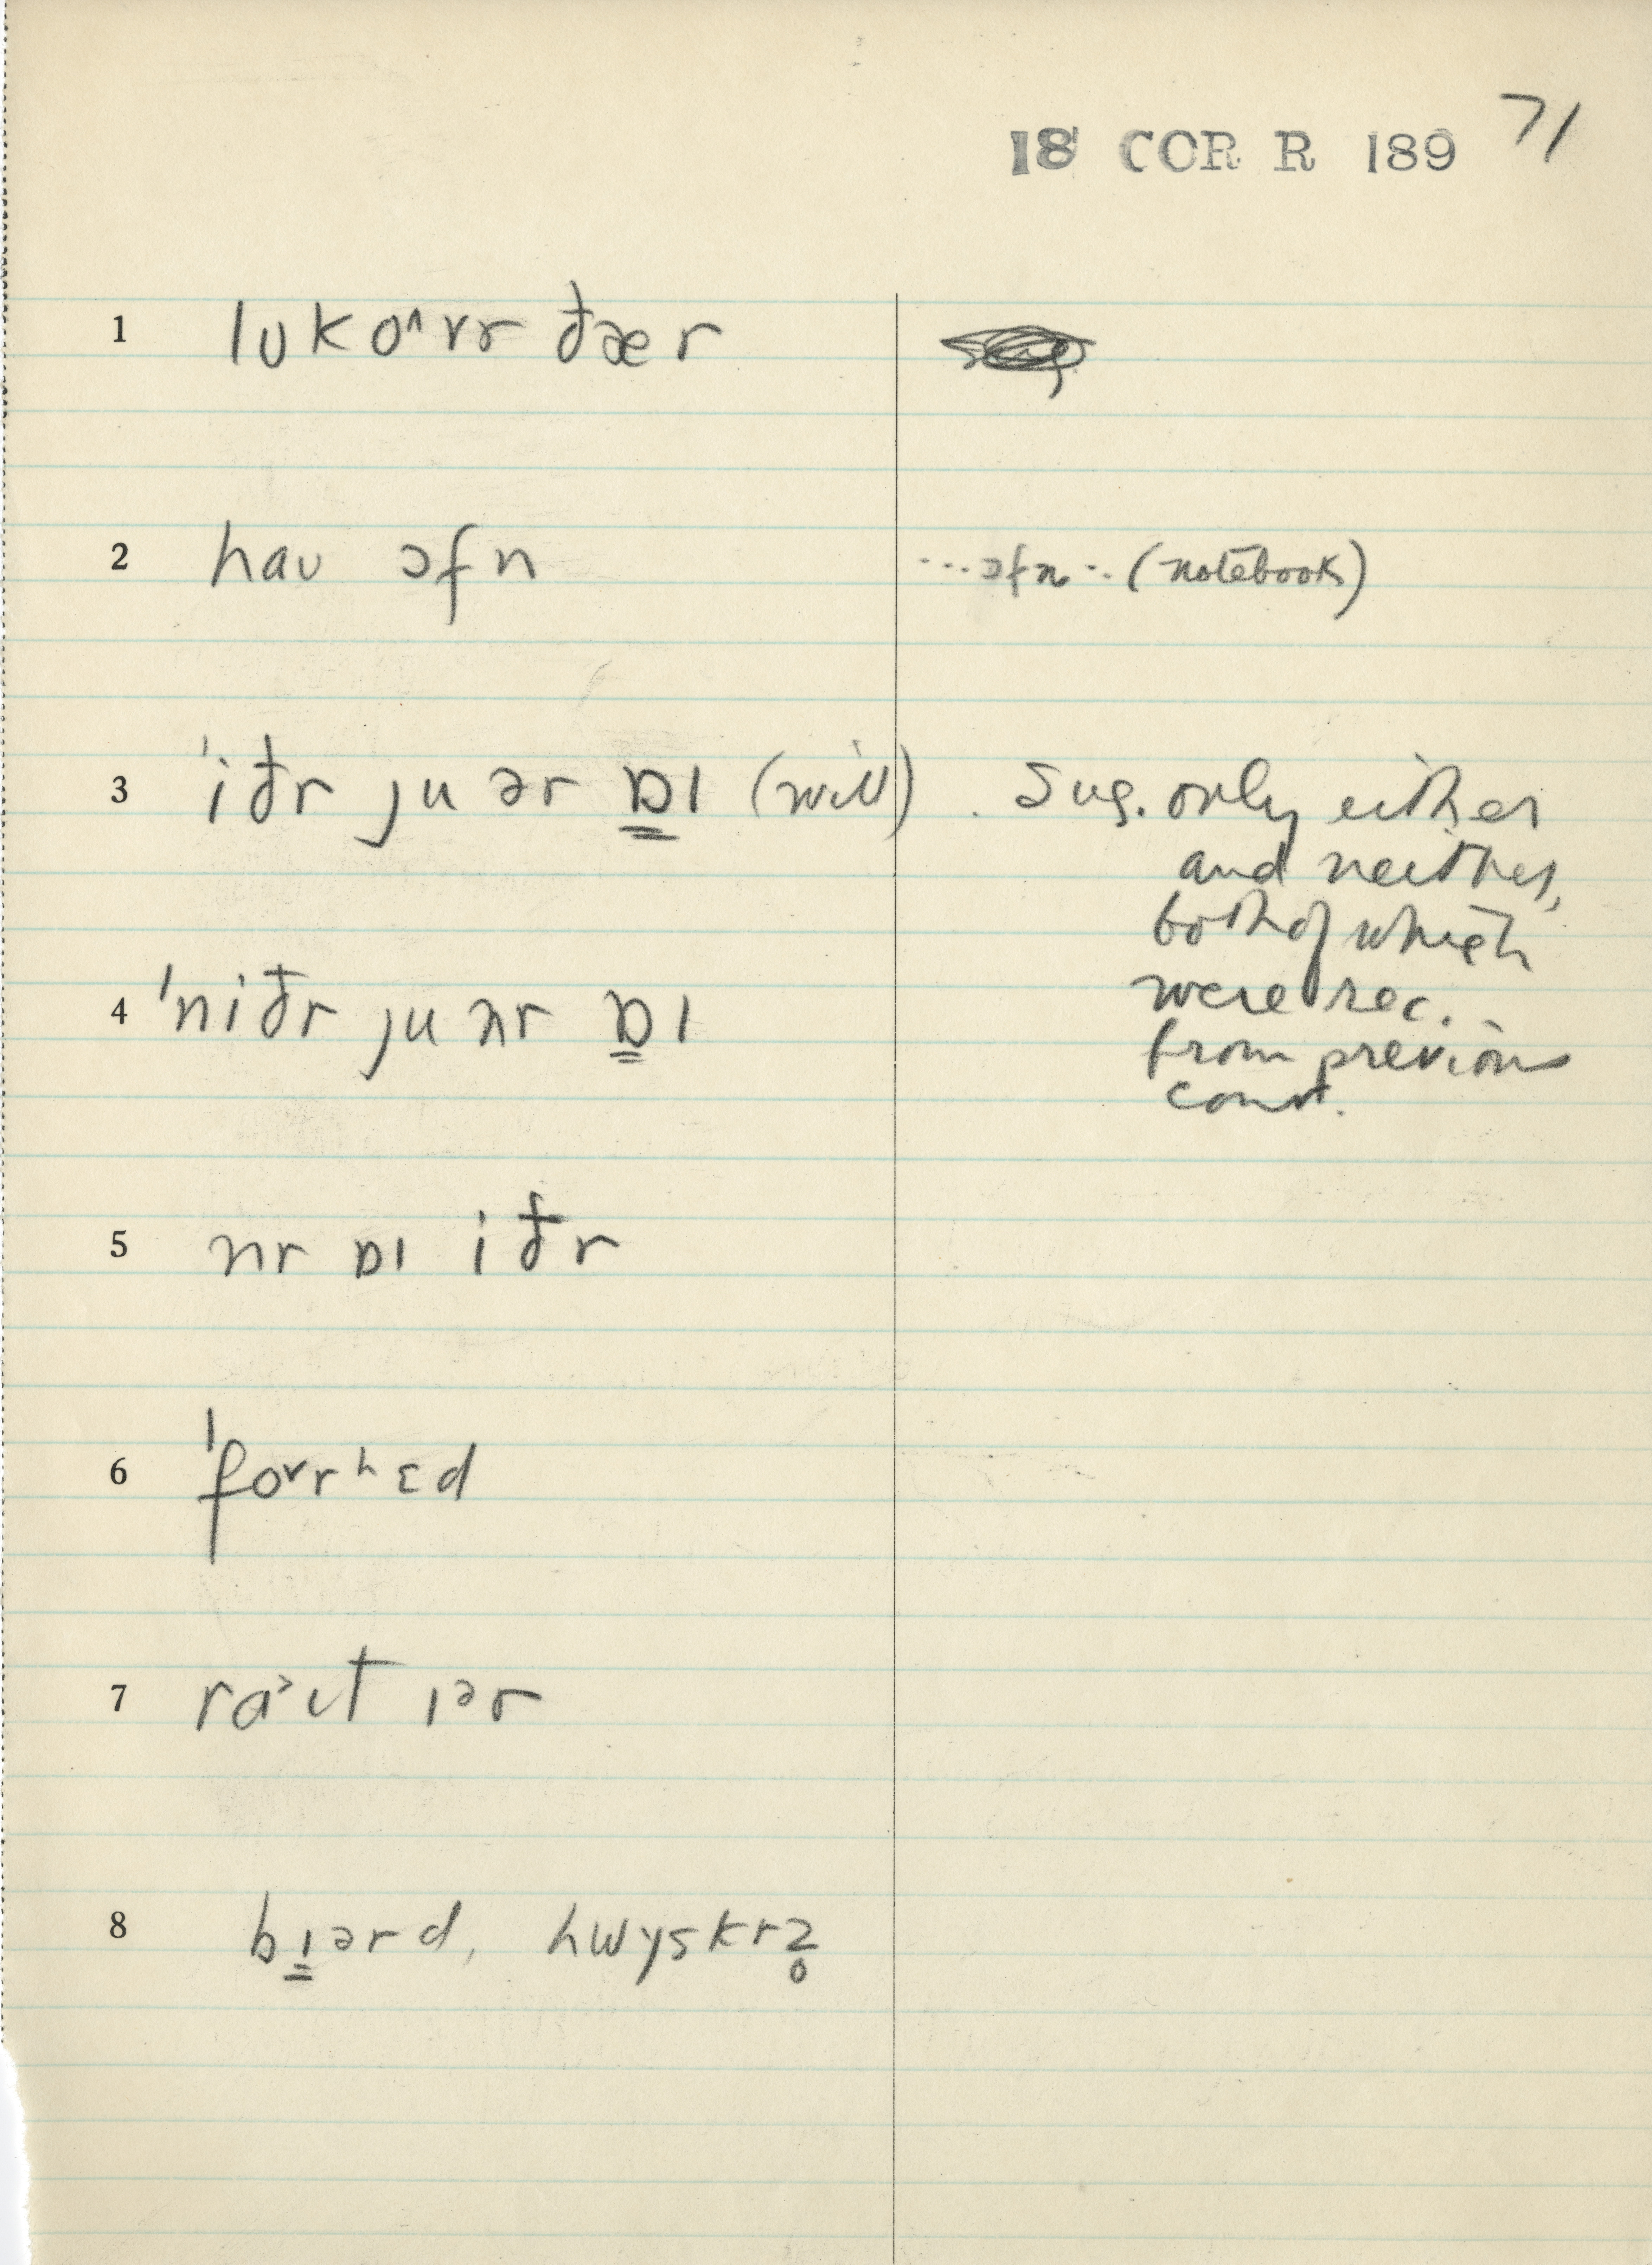 18 COR R 189 71
1 lʊk o˄vr ðær
2 haʊ ɔfn ...ɔfn.. (notebook)
3 ˈiðr ju ər ɒ̳ɪ (will) . Sug. only either
and neither,
both of which
were rec.
from previous
const.
4 ˈniðr ju nr ɒ̳ɪ
5 nr ɒɪ iðr
6 ˈfo˅rʰɛd
7 ra˃ɪt ɪər
8 bɪ̳ərd, hwyskrz̥